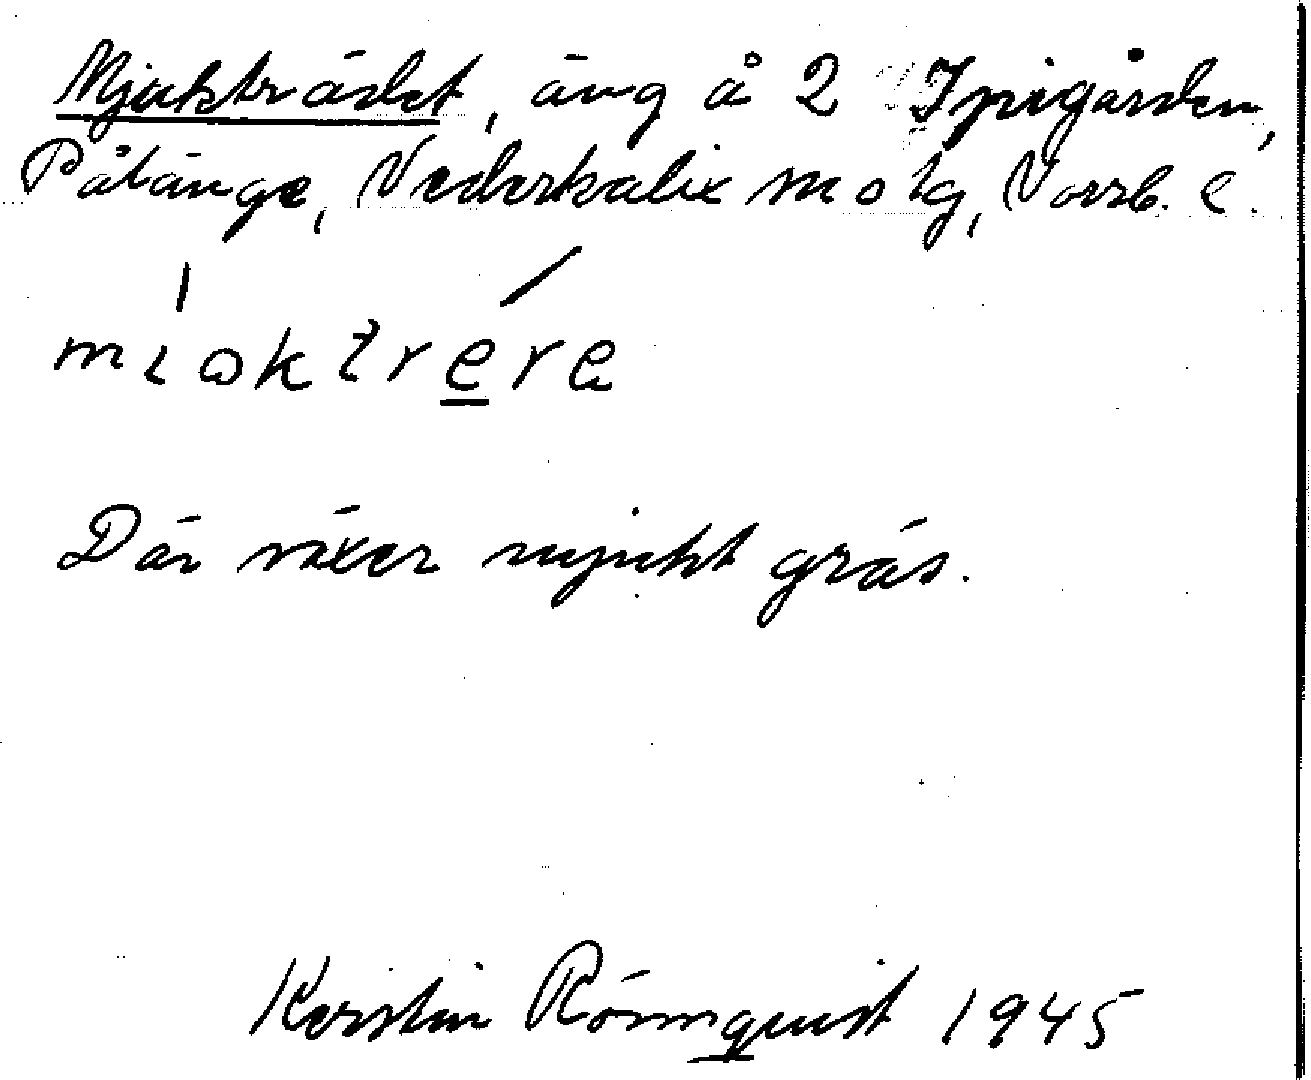 Mjukträdet, äng å 2 Spigården,
Pålänge, Nederkalix sn o tg, Norrb. l.
miɷktrere
Där växer mjukt gräs.
Kerstin Rönnquist 1945